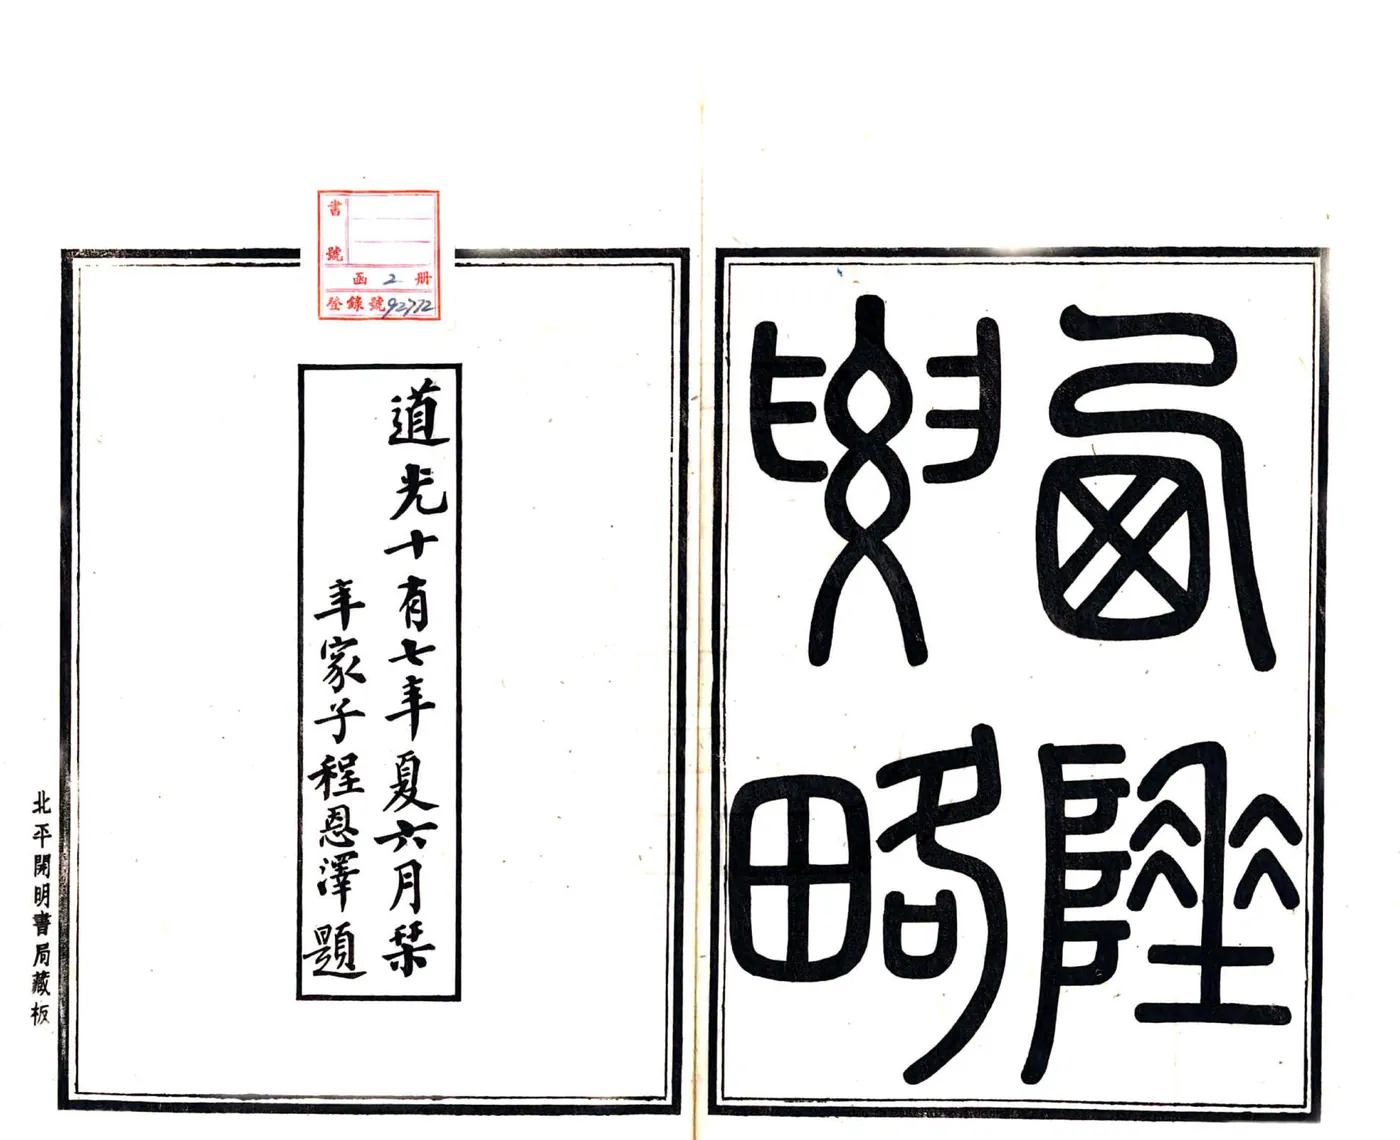 西陲
要略
道光十有七年夏六月栞
年家子程恩澤題
書號
函 2 册
登錄號92772
北平開明書局藏板